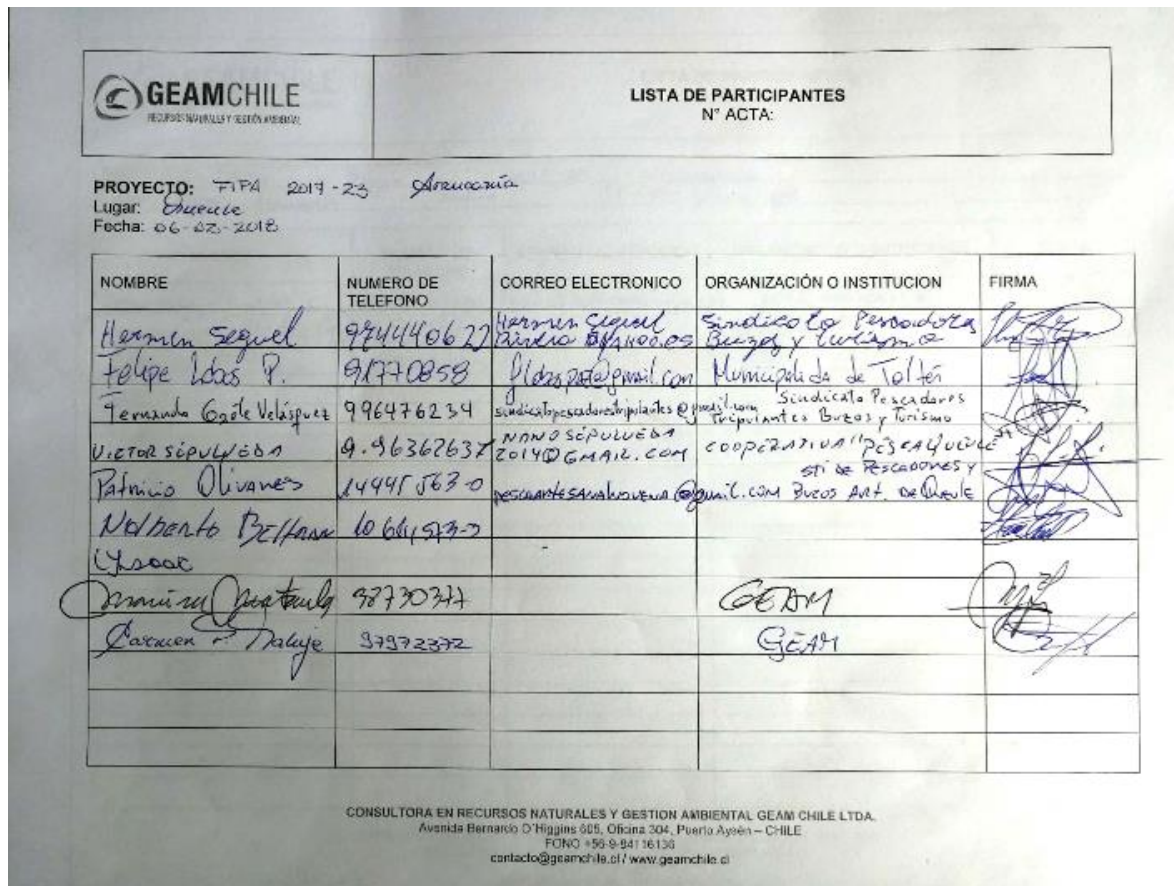 GEAMCHILE
RECURSOS NATURALES Y GESTIÓN AMBIENTAL
LISTA DE PARTICIPANTES
N° ACTA:
PROYECTO: FIPA 2017-23 Araucanía
Lugar: Queule
Fecha: 06-02-2018
NOMBRE NUMERO DE TELEFONO CORREO ELECTRONICO ORGANIZACIÓN O INSTITUCION FIRMA
Hermen Seguel 974440622 Hermen Seguel Sindicato Pescadores Buzos y Turismo
Felipe Ldos P. 91770858 Municipalida de Toltén
Fernando Velásquez 996476234 sindicatopescadorestripulantes@gmail.com Sindicato Pescadores Tripulantes Buzos y Turismo
VICTOR SEPULVEDA 9.96362637 NANOSEPULVEDA 2014@GMAIL.COM COOPERATIVA "PESCAQUEULE"
Patricio Olivares 14445563-0 @gmail.com STI DE PESCADORES Y BUZOS ART. DE QUEULE
Norberto Beltran
Isaac
98730377 GEAM
Carmen 97972372 GEAM
CONSULTORA EN RECURSOS NATURALES Y GESTION AMBIENTAL GEAM CHILE LTDA.
Avenida Bernardo O'Higgins 605, Oficina 304, Puerto Aysén – CHILE
FONO +56-9-84116136
contacto@geamchile.cl / www.geamchile.cl